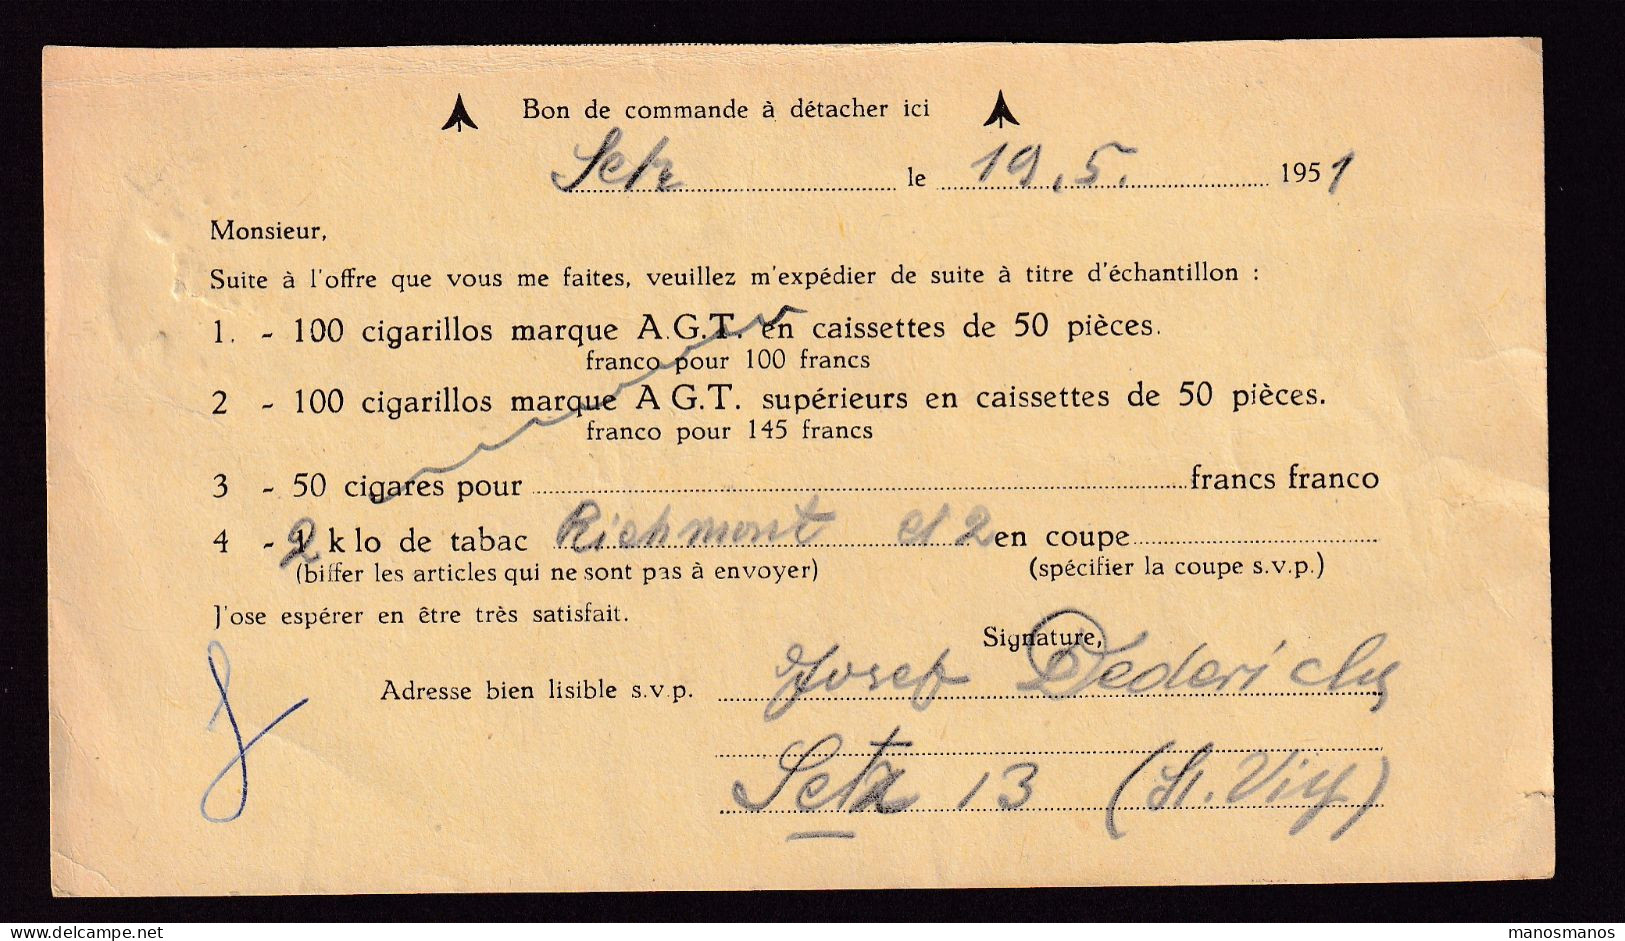 Bon de commande à détacher ici
Setz le 19.5. 1951
Monsieur,
Suite à l'offre que vous me faites, veuillez m'expédier de suite à titre d'échantillon :
1. - 100 cigarillos marque A.G.T. en caissettes de 50 pièces.
franco pour 100 francs
2 - 100 cigarillos marque A G.T. supérieurs en caissettes de 50 pièces.
franco pour 145 francs
3 - 50 cigares pour francs franco
4 - 2 k lo de tabac Richmont et 2 en coupe
(biffer les articles qui ne sont pas à envoyer) (spécifier la coupe s.v.p.)
J'ose espérer en être très satisfait.
Signature,
Adresse bien lisible s.v.p. Josef Dederichs
Setz 13 (St. Vith)
manosmanos.delcampe.net manosmanos